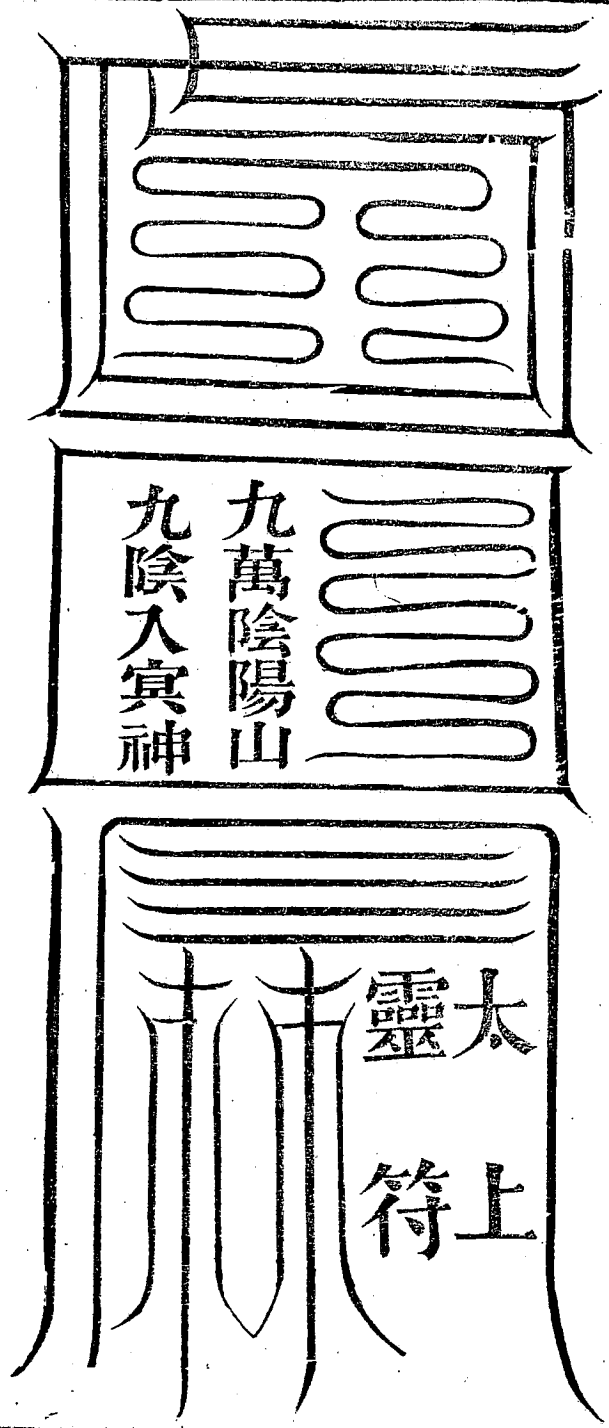 九萬陰陽山
九陰入㝠神
太上
靈符